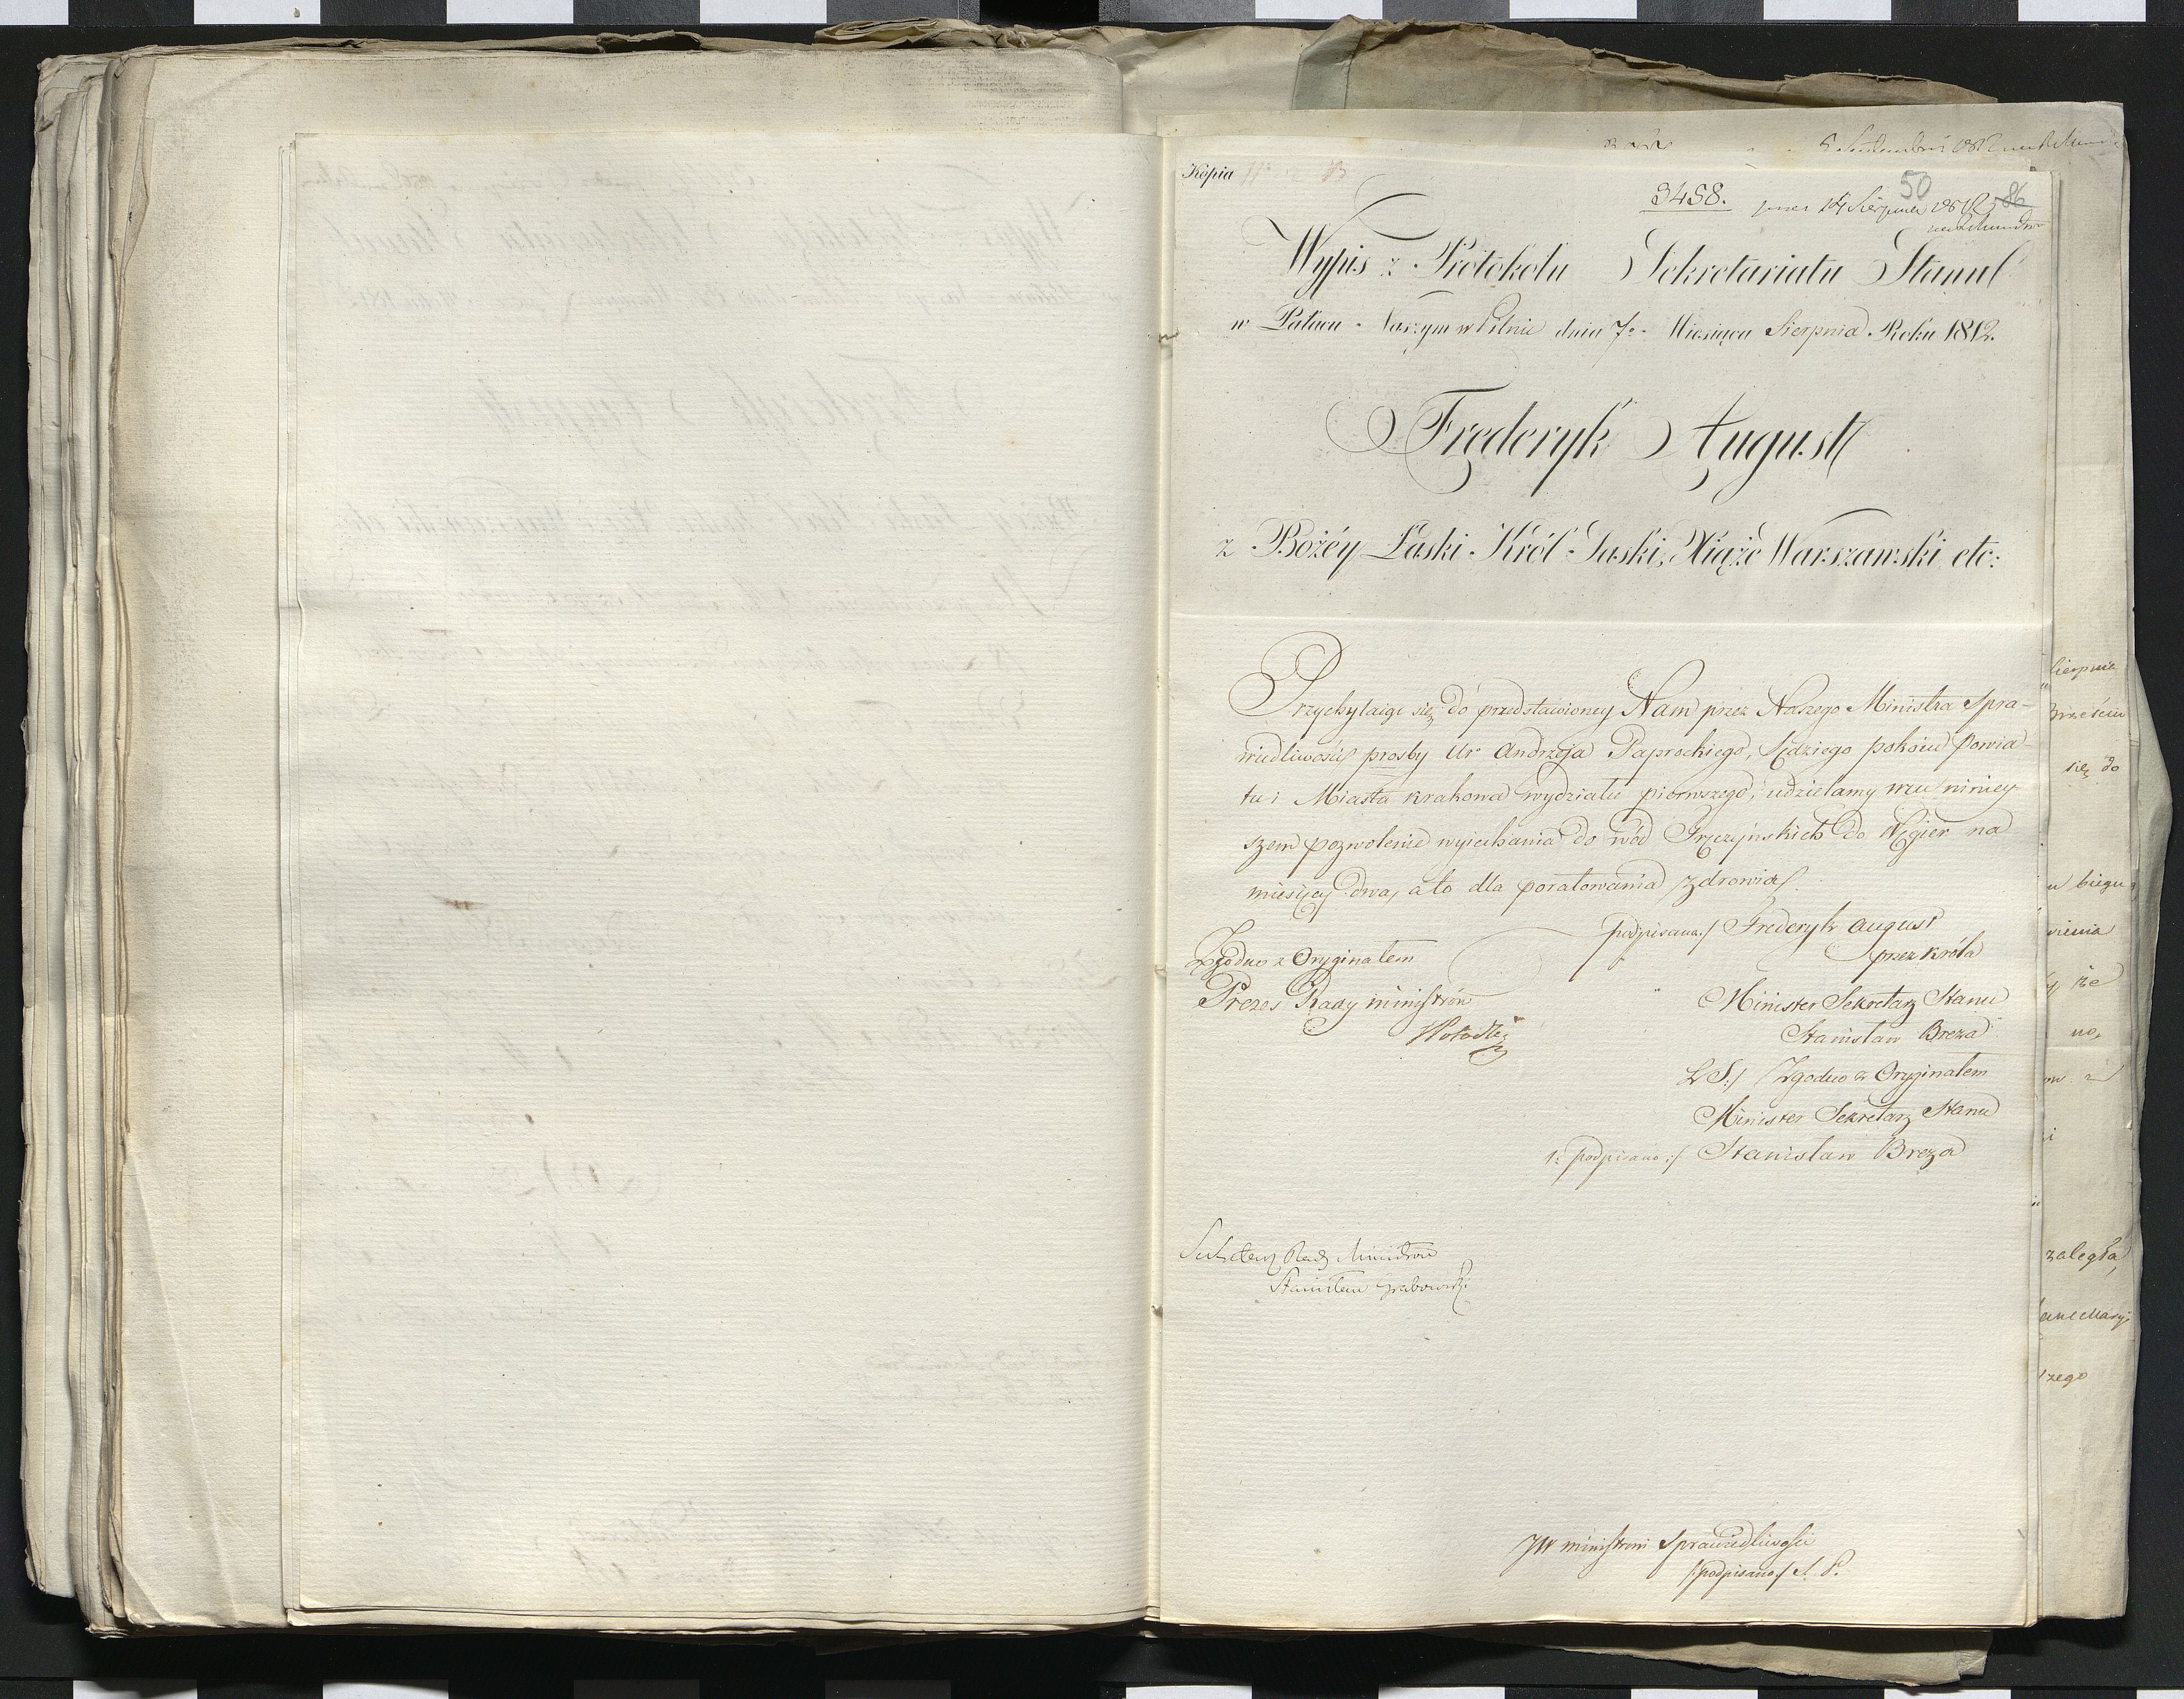 Kopia
3458.
50
86
14 Sierpnia 1812
Wypis z Protokołu Sekretariatu Stanu
w Pałacu Naszym w Pilnic dnia 7o Miesiąca Sierpnia Roku 1812.
Fręderyk August
z Bożéy Łaski Król Saski, Xiąże Warszawski etc:
Przychylaiąc się do przedstawioney Nam przez Naszego Ministra Spra-
wiedliwości prosby Ur Andrzeja Paprockiego, Sędziego pokoiu Powia-
tu i Miasta Krakowa wydziału pierwszego, udzielamy mu niniey-
szem pozwolenie wyiechania do wód Tręczyńskich do Węgier na
miesięcy dwa, a to dla poratowania zdrowia.
podpisano:/ Frederyk August
przez Króla
Zgodno z Oryginałem
Prezes Rady Ministrów
Minister Sekretarz Stanu
Stanisław Breza
L S:/ Zgodno z Oryginałem
Minister Sekretarz Stanu
/: podpisano :/ Stanisław Breza
Sekretarz Rady Ministrów
Stanisław Grabowski
JW Ministrowi Sprawiedliwości
/:podpisano:/ S. P.
Sierpnia
się do
u biegu
że
no,
zaległa,